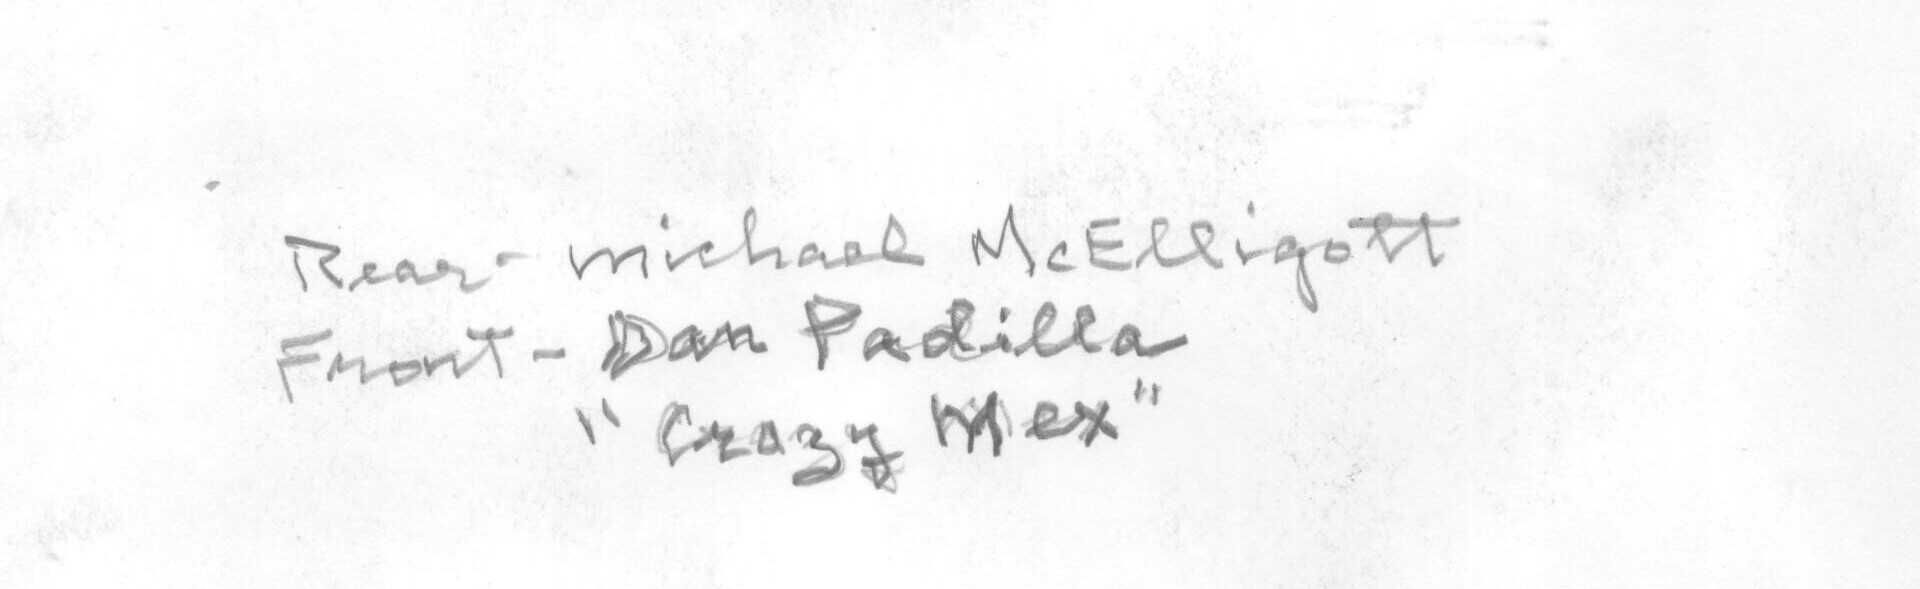 Rear - michael McElligott
Front - Dan Padilla
"Crazy Mex"